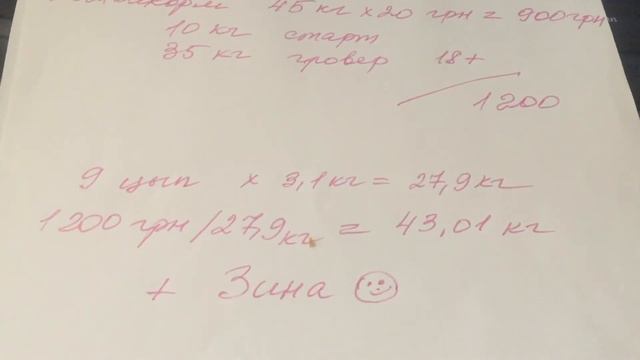 45 кг x 20 грн = 900 грн
10 кг старт
35 кг гровер 18+
1200
9 цып x 3,1 кг = 27,9 кг
1200 грн / 27,9 кг = 43,01 кг
+ Зина